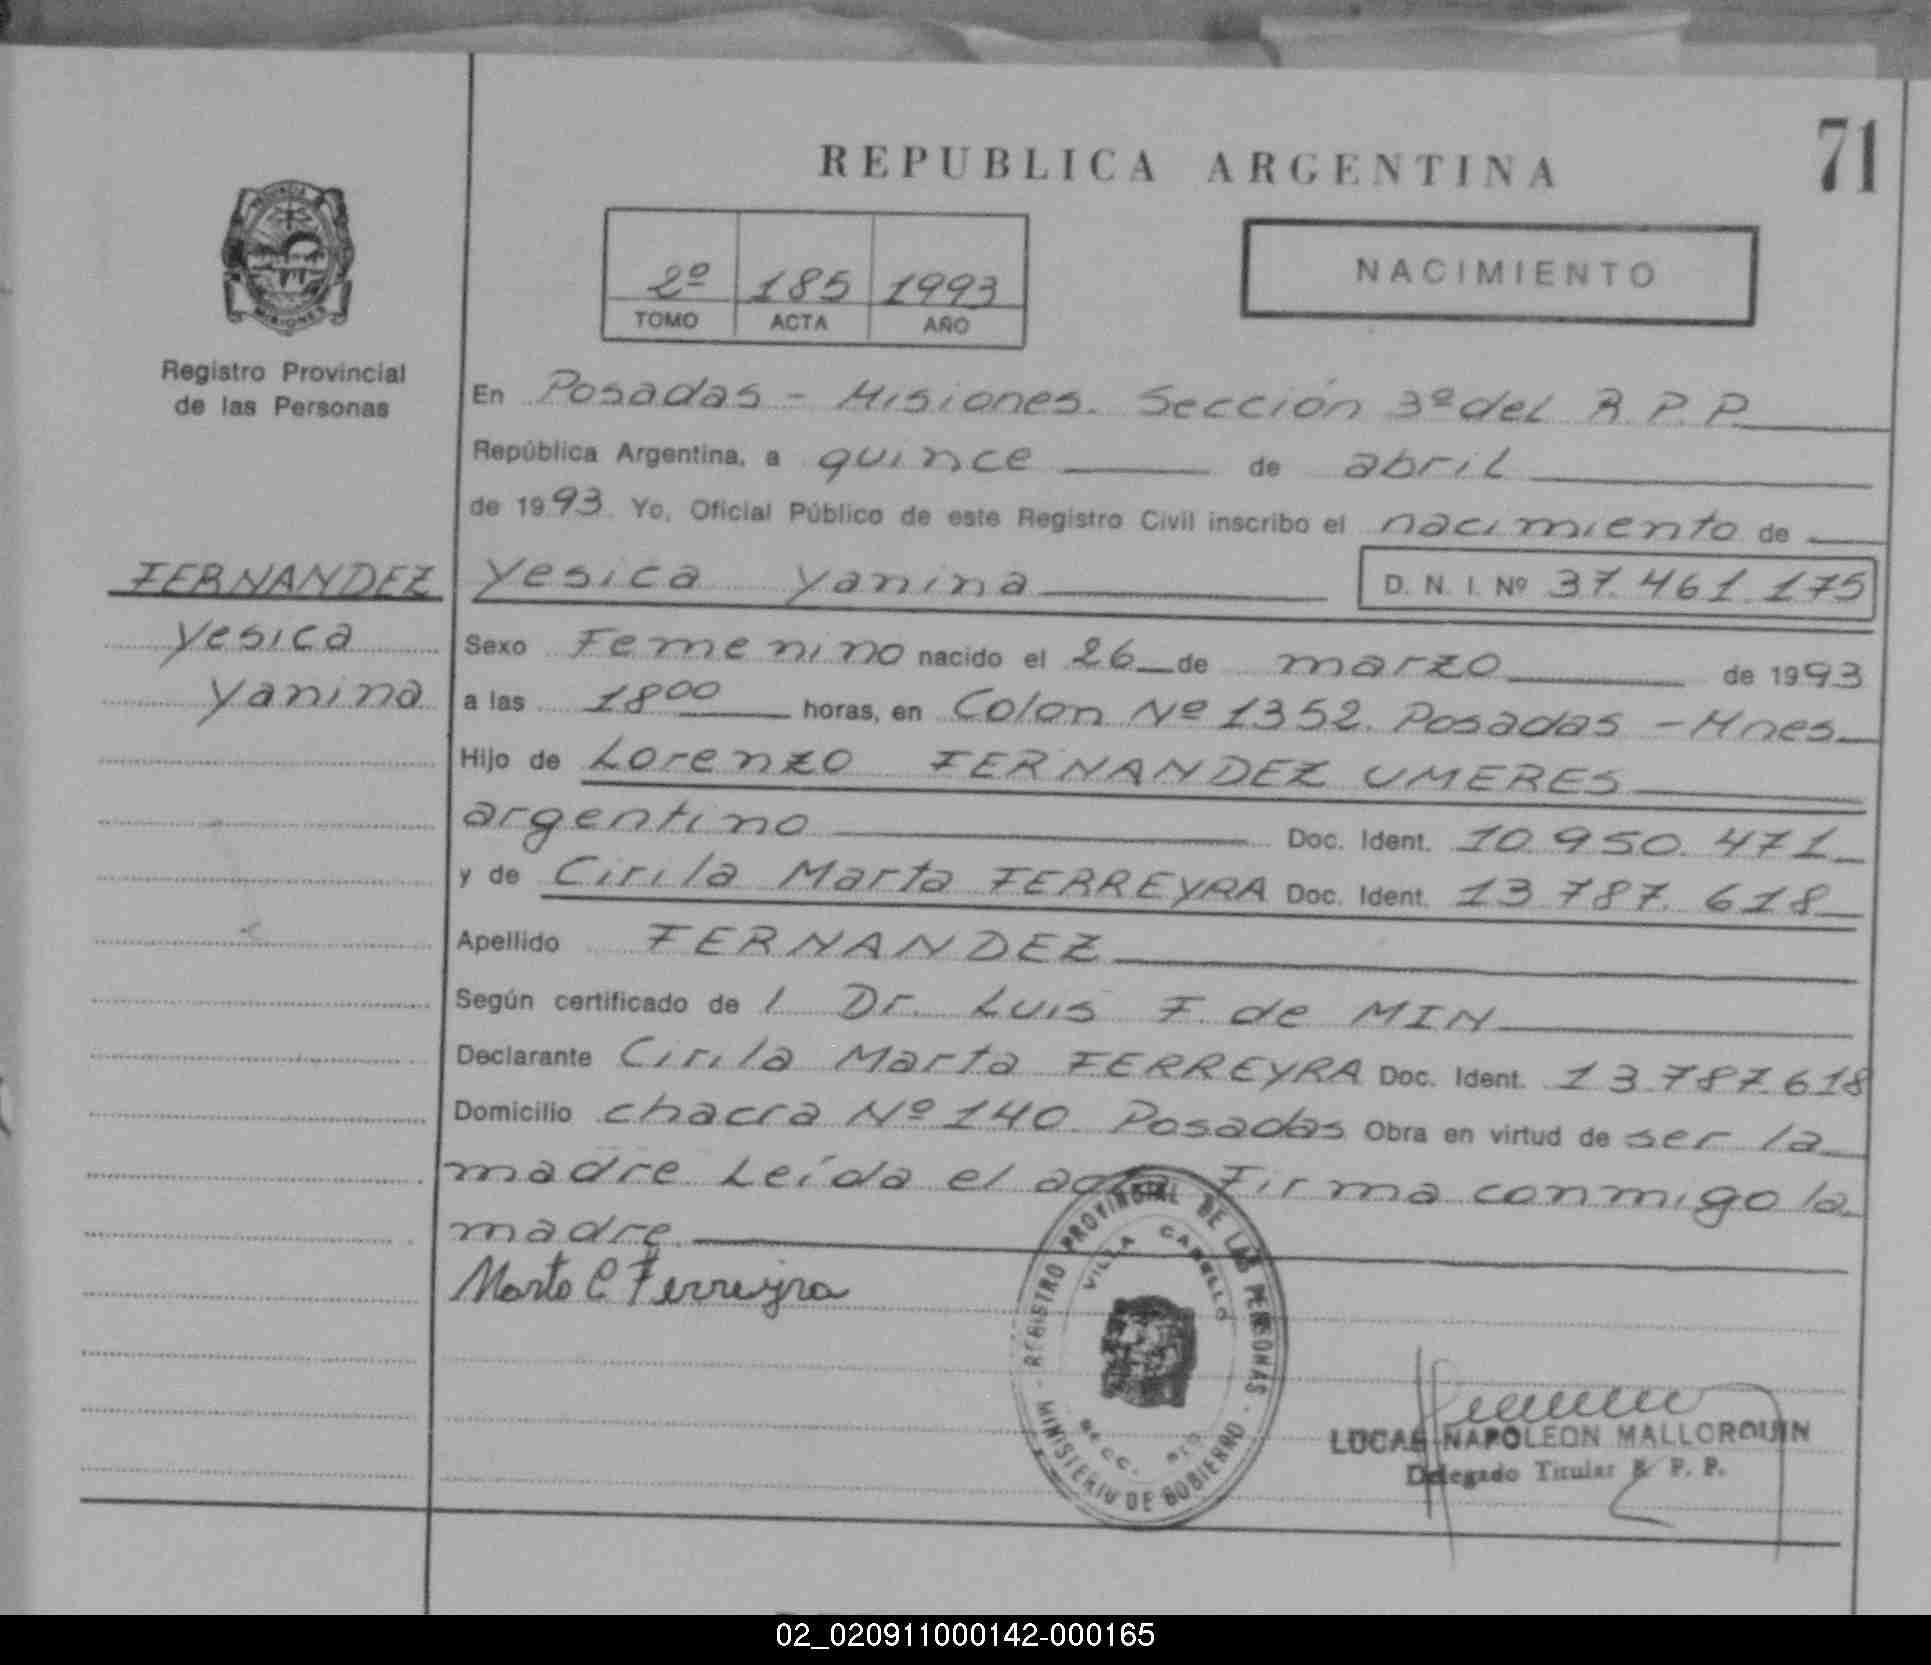 REPUBLICA ARGENTINA
71
2º 185 1993
TOMO ACTA AÑO
NACIMIENTO
PROVINCIA
MISIONES
Registro Provincial
de las Personas
En Posadas - Misiones. Sección 3º del R.P.P.
República Argentina, a quince de abril
de 1993. Yo, Oficial Público de este Registro Civil inscribo el nacimiento de
FERNANDEZ
Yesica
Yanina
Yesica Yanina D. N. I. Nº 37.461.175
Sexo Femenino nacido el 26 de marzo de 1993
a las 18 00 horas, en Colon Nº 1352. Posadas - Mnes
Hijo de Lorenzo FERNANDEZ UMERES
argentino Doc. Ident. 10.950.471
y de Cirila Marta FERREYRA Doc. Ident. 13.787.618
Apellido FERNANDEZ
Según certificado de l Dr. Luis F. de MIN
Declarante Cirila Marta FERREYRA Doc. Ident. 13.787.618
Domicilio chacra Nº 140. Posadas Obra en virtud de ser la
madre. Leída el acta Firma conmigo la
madre.
Marta C. Ferreyra
REGISTRO PROVINCIAL DE LAS PERSONAS
VILLA CABELLO
MINISTERIO DE GOBIERNO
LUCAS NAPOLEON MALLORQUIN
Delegado Titular R. P. P.
02_020911000142-000165